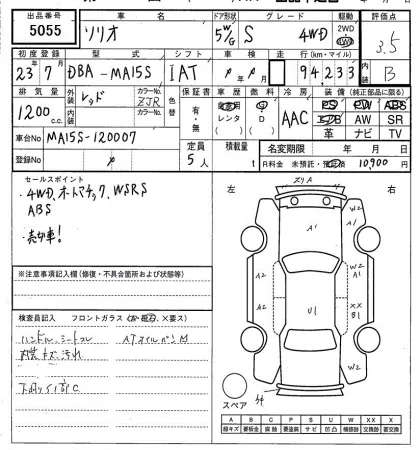 出品番号 車名 ドア形状 グレード 駆動 評価点
5055 ソリオ 5W/G S 4WD 2WD 4WD 3.5
初度登録 型式 シフト 車検 走行(km・マイル) 内装
23年7月 DBA-MA15S IAT 年 月 94,233 B
排気量 外装 レッド カラーNo. ZJR 色替 保証書 車歴 燃料 冷房 装備(純正部品に限る)
1200c.c. 内装 カラーNo. 有・無 自家用 レンタ G D AAC PS PW ABS
エアB AW SR
革 ナビ TV
車台No MA15S-120007 定員 積載量 名変期限 年 月 日
登録No 5人 t R料金 未預託・預託済 10,900円
セールスポイント
・4WD、オートマチック、WSRS
ABS
・売切車!
左 右
リA
W2
A1
A1
W2
A2
W2
A1
A2
U1
XX
B1
W2
スペア
※注意事項記入欄(修復・不具合箇所および状態等)
検査員記入 フロントガラス ×要ス)
ハンドル、シートスレ
内装キズ汚れ
下回りS1
A B C P S U W XX X
線キズ 要板金 腐蝕 要塗装 サビ 凹凸 補修跡 交換跡 要交換